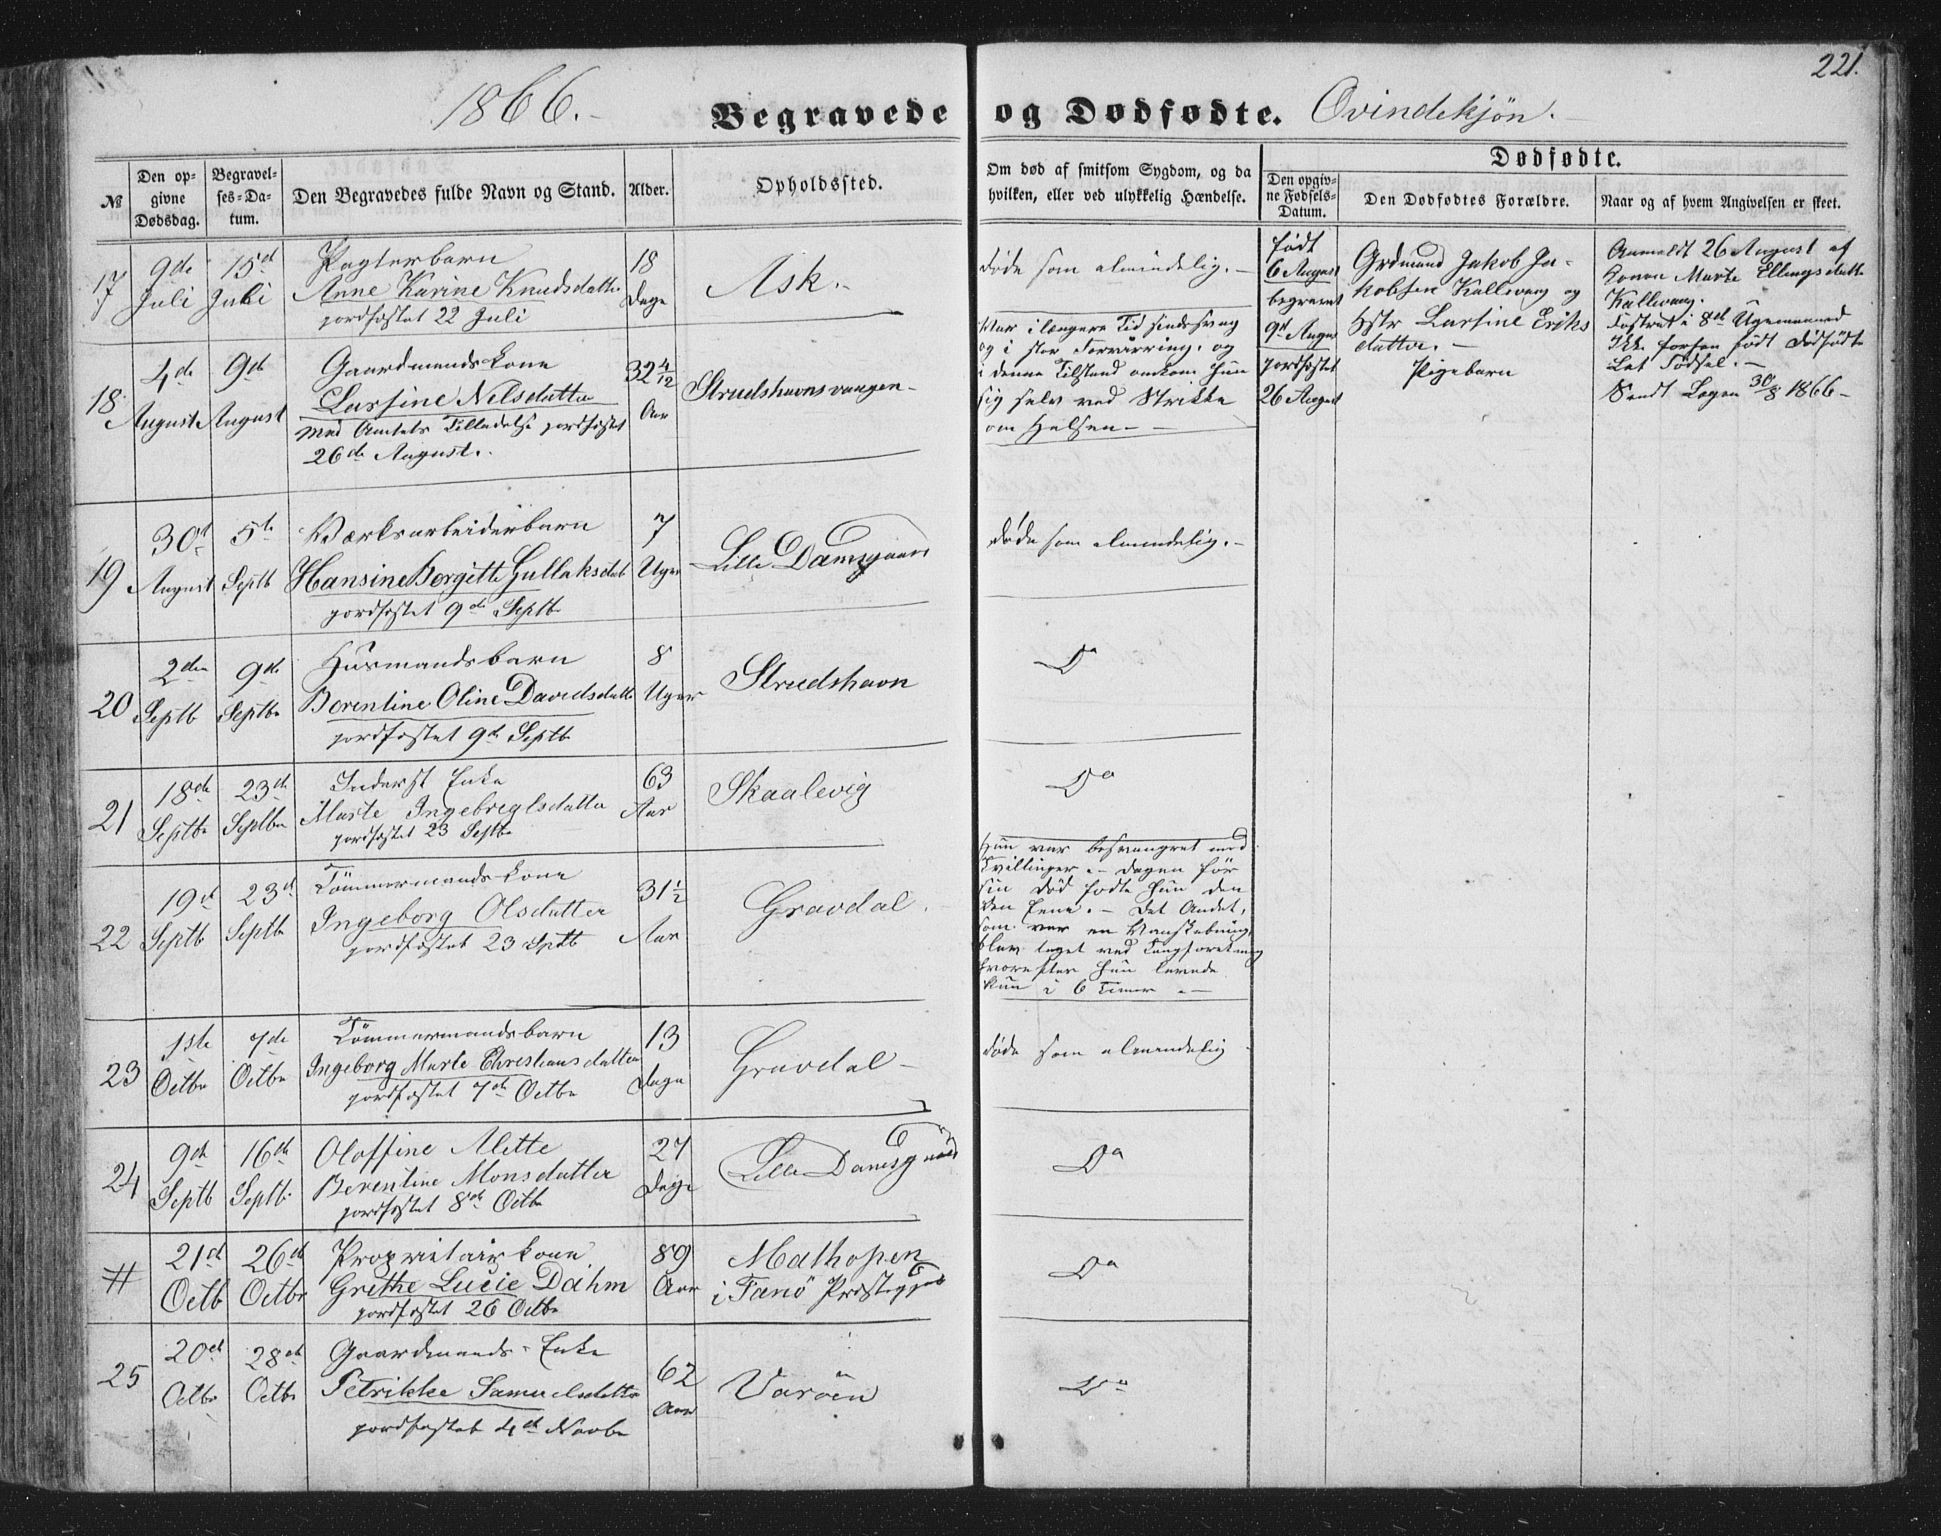 221.
1866.- Begravede og Dødfødte. Qvindekjøn.
№
Den op-
givne
Dødsdag.
Begravel-
ses-Da-
tum.
Den Begravedes fulde Navn og Stand.
Alder.
Opholdssted.
Om død af smitsom Sygdom, og da
hvilken, eller ved ulykkelig Hændelse.
Dødfødte.
Den opgiv-
ne Fødsels-
Datum.
Den Dødfødtes Forældre.
Naar og af hvem Angivelsen er skeet.
17
9de
Juli
15d
Juli
Pagterbarn
Anne Karine Knudsdatter
jordfæstet 22 Juli
18
Dage
Ask.-
døde som almindelig.-
født
6 August
begravet
9d August
jordfæstet
26 August
Grdmand Jakob Ja-
kobsen Kallevang og
Hstr Larsine Eriks
datter.-
Pigebarn
Anmeldt 26 August af
Konen Marte Ellingsdatter
Kallevang.
Fostret i 8d Ugemaaned
Ikke forsen født Dødfødte
Let Fødsel.-
Sendt Legen 30/8 1866-
18
4de
August
9de
August
Gaardmandskone
Larsine Nilsdatter
Med Amtets Tilladelse jordfæstet
26de August.
32 4/12
Aar
Strudshavns vangen-
Var i længere Tid sindssvag
og i stor Forvirring, og
i denne Tilstand omkom hun
sig selv ved Strikke
om Halsen.-
19
30t
August
5te
Septb
Værksarbeiderbarn
Hansine Borgitte Gullaksdat
jordfæstet 9de Septbr
7
Uger
Lille Damsgaard
døde som almindelig.-
20
2den
Septb
9de
Septbr
Husmandsbarn
Berentine Oline Davidsdatter
jordfæstet 9de Septbr
8
Uger
Strudshavn
Do
21
18de
Septbr
23de
Septbr
Inderst Enke
Marte Ingebregtsdatter
jordfæstet 23 Septbr
63
Aar
Skaalevig
Do
22
19d
Septb
23d
Septbr
Tømmermandskone
Ingeborg Olsdatter
jordfæstet 23 Sptb
31 1/2
Aar
Gravdal.
Hun var besvangret med
Tvillinger.- Dagen før
sin Død fødte hun den
Den Ene.- Det Andet,
som var en Vanskabning,
blev taget ved Tangforetning
hvorefter hun levede
kun i 6 Timer.-
23
1ste
Octbr
7de
Octbr
Tømmermandsbarn
Ingeborg Marte Christiansdatter
jordfæstet 7de Octbr
13
Dage
Gravdal-
døde som almindelig
24
9de
Septb
16de
Septb
Oloffine Alette
Berentine Monsdatter
jordfæstet 8de Octbr
27
Dage
Lille Damsgaard
Do
#
21d
Octb
26d
Octbr
Proprietair kone
Grethe Lucie Dahm
jordfæstet 26 Octbr
89
Aar
Mathopen
i Fanö Præstegjeld
Do
25
20de
Octbr
28de
Octbr
Gaardmands-Enke
Petrikke Samuelsdatter
jordfæstet 4de Novbr
62
Aar
Varöen
Do